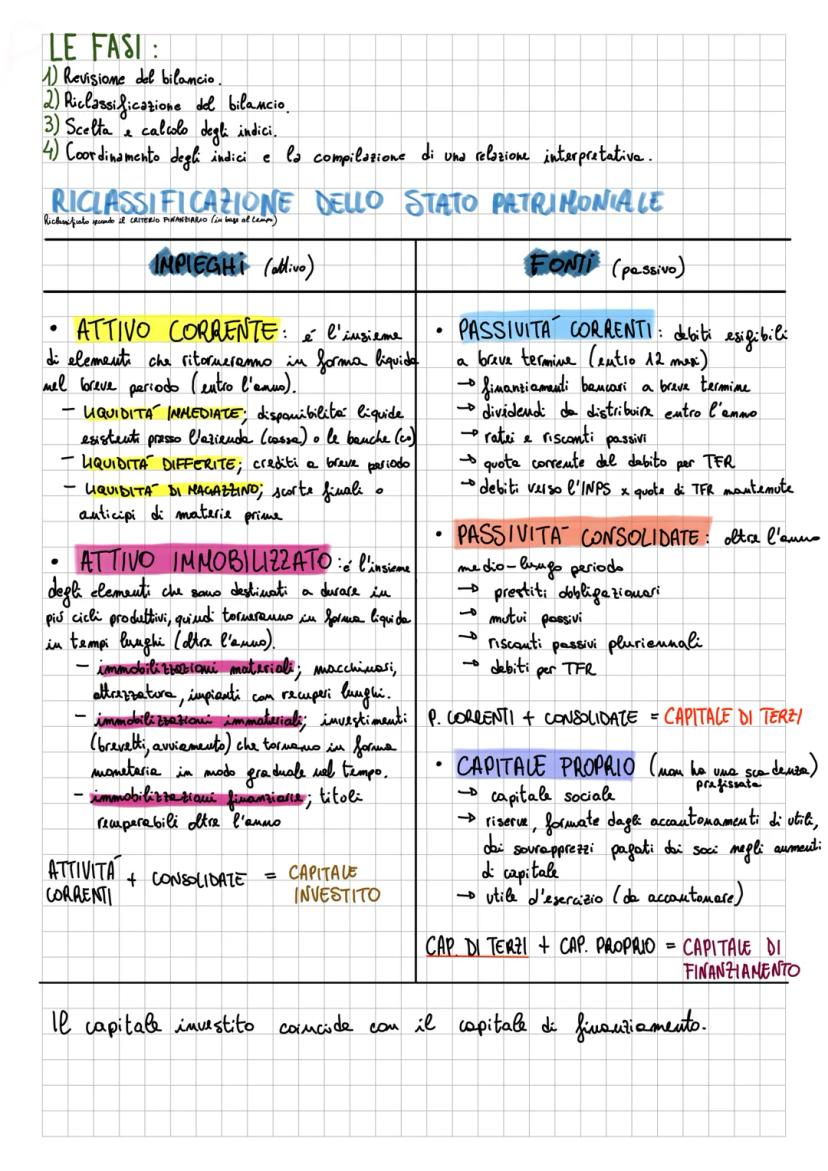 LE FASI :
1) Revisione del bilancio.
2) Riclassificazione del bilancio.
3) Scelta e calcolo degli indici.
4) Coordinamento degli indici e la compilazione di una relazione interpretativa.
RICLASSIFICAZIONE DELLO STATO PATRIMONIALE
Riclassificato secondo il CRITERIO FINANZIARIO (in base al tempo)
IMPIEGHI (attivo)
• ATTIVO CORRENTE: é l'insieme
di elementi che ritorneranno in forma liquida
nel breve periodo (entro l'anno).
- LIQUIDITÀ IMMEDIATE; disponibilità liquide
esistenti presso l'azienda (cassa) o le banche (cc)
- LIQUIDITÀ DIFFERITE; crediti a breve periodo
- LIQUIDITÀ DI MAGAZZINO; scorte finali o
anticipi di materie prime
• ATTIVO IMMOBILIZZATO: é l'insieme
degli elementi che sono destinati a durare in
più cicli produttivi, quindi torneranno in forma liquida
in tempi lunghi (oltre l'anno).
- immobilizzazioni materiali; macchinari,
attrezzatura, impianti con recuperi lunghi.
- immobilizzazioni immateriali; investimenti
(brevetti, avviamento) che tornano in forma
monetaria in modo graduale nel tempo.
- immobilizzazioni finanziarie; titoli
recuperabili oltre l'anno
ATTIVITÀ CORRENTI + CONSOLIDATE = CAPITALE INVESTITO
FONTI (passivo)
• PASSIVITÀ CORRENTI: debiti esigibili
a breve termine (entro 12 mesi)
→ finanziamenti bancari a breve termine
→ dividendi da distribuire entro l'anno
→ ratei e risconti passivi
→ quota corrente del debito per TFR
→ debiti verso l'INPS x quote di TFR mantenute
• PASSIVITÀ CONSOLIDATE: oltre l'anno
medio-lungo periodo
→ prestiti obbligazionari
→ mutui passivi
→ risconti passivi pluriennali
→ debiti per TFR
P. CORRENTI + CONSOLIDATE = CAPITALE DI TERZI
• CAPITALE PROPRIO (non ha una scadenza)
prefissata
→ capitale sociale
→ riserve, formate dagli accantonamenti di utili,
dai sovrapprezzi pagati dai soci negli aumenti
di capitale
→ utile d'esercizio (da accantonare)
CAP. DI TERZI + CAP. PROPRIO = CAPITALE DI
FINANZIAMENTO
Il capitale investito coincide con il capitale di finanziamento.